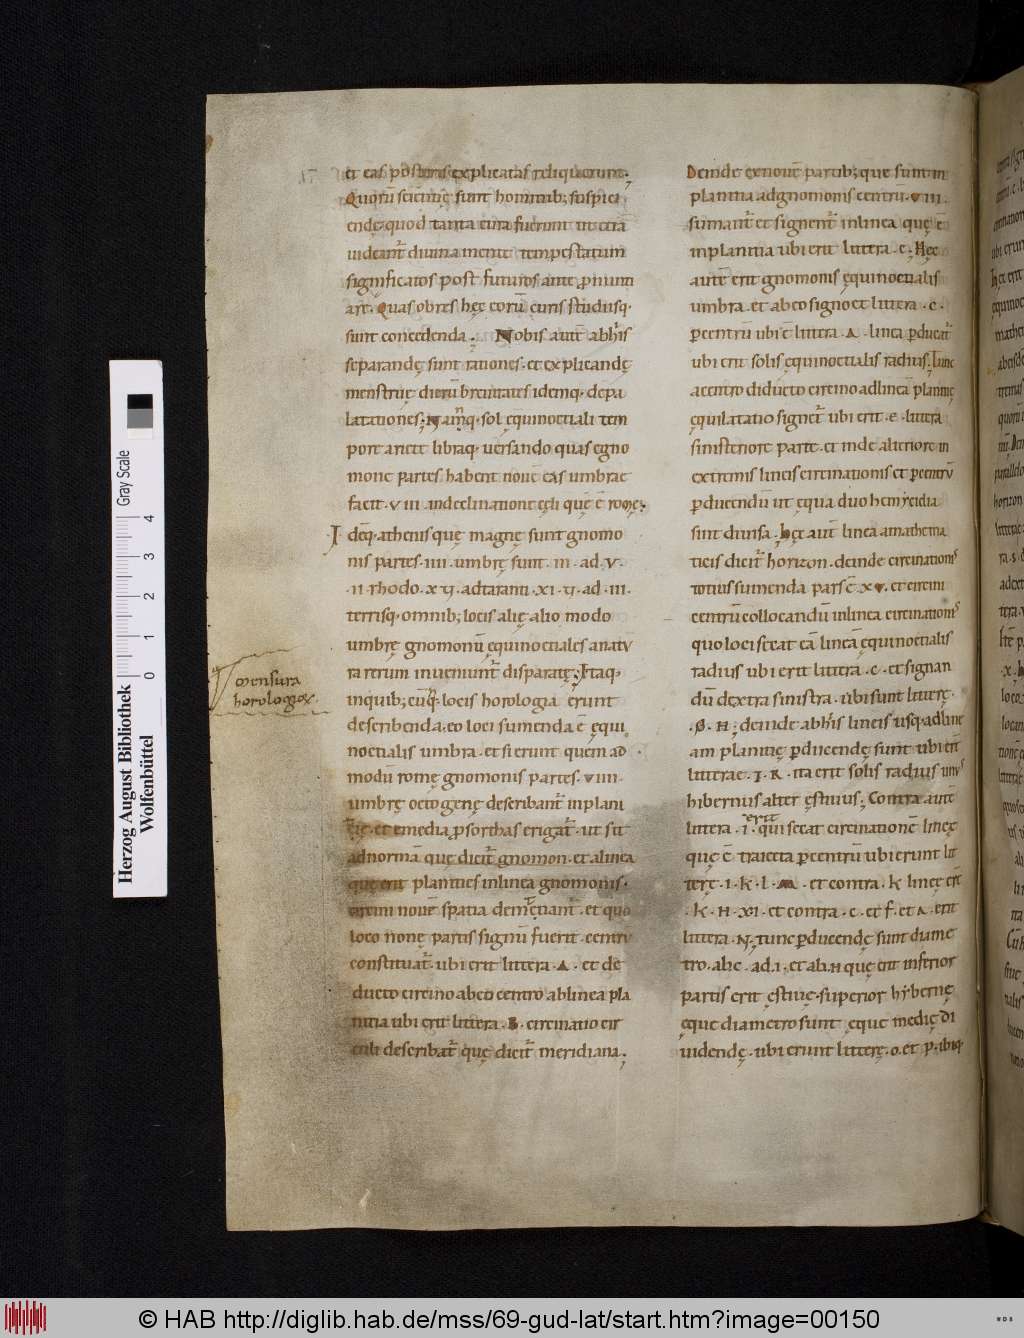 et eas posteris explicatas reliquerunt.
Quorū sciētię sunt hominib; suspici
endę quod tanta cura fuerunt ut etiā
uideant̄ diuina mente tempestatum
significatos post futuros ante pronunti
are. Quas obres hęc eorū curis studiisq·
sunt concedenda. Nobis autē abhis
separandę sunt rationes. et explicandę
menstruę dierū breuitates idemq· depa
latationes. Namq· sol ęquinoctiali tem
pore ariete libraq· uersando quas egno
mone partes habent nouē eas umbrae
facit. VIII. indeclinatione cęli quę ē romę.
Idēq· athenis quę magnę sunt gnomo
nis partes. IIII. umbrę sunt. III. ad. V.
terrisq· omnib; locis alię alio modo
umbrę gnomonū ęquinoctiales anatū
ra rerum inueniunt̄ disparatę. Itaq·
inquib; cūq· locis horologia erunt
describenda. eo loci sumenda ē ęqui
noctialis umbra. et si erunt quem ad
modū romę gnomonis partes. VIIII.
umbrę octogenę describant̄ inplani
et emedia prorthas erigat̄. ut sit
adnormā que dicit̄ gnomon. et alinea
que erit planities inlinea gnomonis.
circini nouē spatia demetiant̄. et quo
loco nonę partis signū fuerit. centrū
constituat̄. ubi erit littera. A. et de
ducto circino abeo centro ablinea pla
nitia ubi erit littera. B. circinatio cir
culi describat̄ quę dicit̄ meridiana.
mensura
horologiorum
Deinde exnouē partib; que sunt in
planitia adgnomonis centrū. VIII.
sumant̄ et signent̄ inlinea quę ē
inplanitia ubi erit littera. c. Hęc
autē erit gnomonis ęquinoctialis
umbra. et abeo signo et littera. c.
p centrū ubi ē littera. A. linea pducat̄
ubi erit solis ęquinoctialis radius. tunc
acentro diducto circino adlineā planitię
ęquilatatio signet̄ ubi erit. e. littera
sinisteriore parte. et inde alteriore in
extremis lineis circinationis et p centrū
pducendū ut ęqua duo hemycidia
sint diuisa. hęc autē linea amathema
ticis dicit̄ horizon. deinde circinationis
totius sumenda pars ē xv. et circini
centrū collocandū inlinea circinationis
quo loci secat eā lineā ęquinoctialis
radius ubi erit littera. c. et signan
dū dextra sinistra. ubi sunt litterę
deinde abhis lineis usq· adline
am planitię pducendę sunt ubi erit
litterae. T. R. ita erit solis radius unus
hibernus alter ęstiuus. Contra autē
erit
littera. i. qui secat circinationē lineę
quę ē traiecta p centrū ubi erunt lit
terę. i. k. l. M. et contra. k lineę erit
. k. H. XI. et contra. c. et f. et A. erit
littera. N. tunc pducendę sunt diame
tro. abc. ad. i. et ab. H quę erit inferior
partis erit ęstiuę. superior hybernę
ęque diametro sunt ęque medię di
uidendę. ubi erunt litterę. o. et p. ibiq·
Herzog August Bibliothek
Wolfenbüttel
Gray Scale
0 1 2 3 4
© HAB http://diglib.hab.de/mss/69-gud-lat/start.htm?image=00150